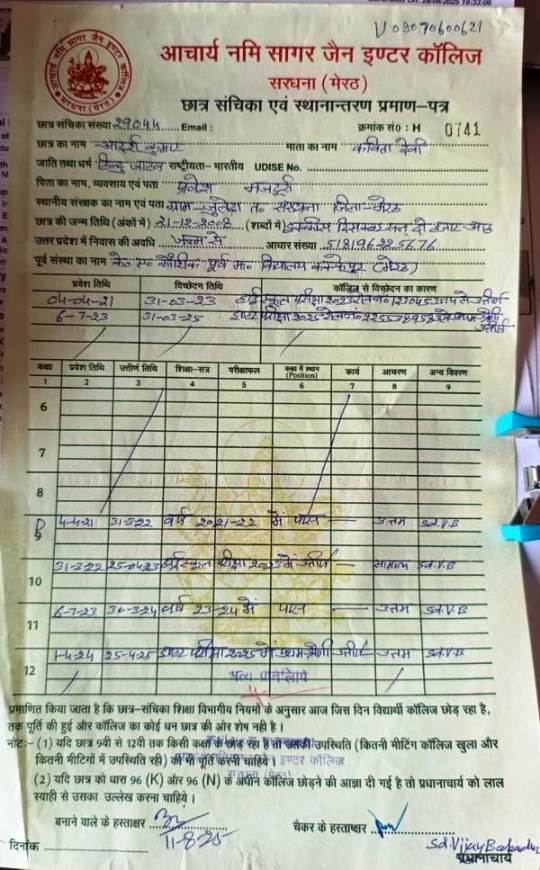 V 09070600621
आचार्य नमि सागर जैन इण्टर कॉलिज
सरधना (मेरठ)
छात्र संचिका एवं स्थानान्तरण प्रमाण-पत्र
छात्र संचिका संख्या 29044 Email : क्रमांक सं० : H 0741
छात्र का नाम कुमार माता का नाम कविता देवी
जाति तथा धर्म हिन्दू जाटव राष्ट्रीयता- भारतीय UDISE No.
पिता का नाम, व्यवसाय एवं पता मजदूरी
स्थानीय संरक्षक का नाम एवं पता ग्राम त० सरधना जिला-मेरठ
छात्र की जन्म तिथि (अंकों में) 21-12-2008 (शब्दों में) इक्कीस दिसम्बर सन दो हजार आठ
उत्तर प्रदेश में निवास की अवधि जन्म से आधार संख्या 518196225676
पूर्व संस्था का नाम पूर्व मा० विद्यालय (मेरठ)
प्रवेश तिथि विच्छेदन तिथि कॉलिज से विच्छेदन का कारण
04-04-21 31-03-23 हाईस्कूल परीक्षा 2023 से उत्तीर्ण
6-7-23 31-03-25 इण्टर परीक्षा 2025 श्रेणी
उत्तीर्ण
कक्षा प्रवेश तिथि उत्तीर्ण तिथि शिक्षा-सत्र परीक्षाफल कक्षा में स्थान (Position) कार्य आचरण अन्य विवरण
1 2 3 4 5 6 7 8 9
6
7
8
9 4-4-21 31-3-22 वर्ष 2021-22 में पास उत्तम sd.V.B
10 31-3-22 25-04-23 हाईस्कूल परीक्षा 2023 में उत्तीर्ण सामान्य sd.V.B
11 6-7-23 30-3-24 वर्ष 23-24 में पास उत्तम sd.V.B
12 1-4-24 25-4-25 इण्टर परीक्षा 2025 में प्रथम श्रेणी उत्तीर्ण उत्तम sd.V.B
प्रमाणित किया जाता है कि छात्र-संचिका शिक्षा विभागीय नियमों के अनुसार आज जिस दिन विद्यार्थी कॉलिज छोड़ रहा है,
तक पूर्ति की हुई और कॉलिज का कोई धन छात्र की ओर शेष नही है।
नोटः- (1) यदि छात्र 9वीं से 12वीं तक किसी कक्षा को छोड़ रहा है तो उसकी उपस्थिति (कितनी मीटिंग कॉलिज खुला और
कितनी मीटिंगों में उपस्थिति रही) की भी पूर्ति करनी चाहिये। इण्टर कॉलिज
(2) यदि छात्र को धारा 96 (K) और 96 (N) के अधीन कॉलिज छोड़ने की आज्ञा दी गई है तो प्रधानाचार्य को लाल
स्याही से उसका उल्लेख करना चाहिये।
बनाने वाले के हस्ताक्षर चैकर के हस्ताक्षर
11-8-25
sd. Vijay Bahadur
दिनांक प्रधानाचार्य